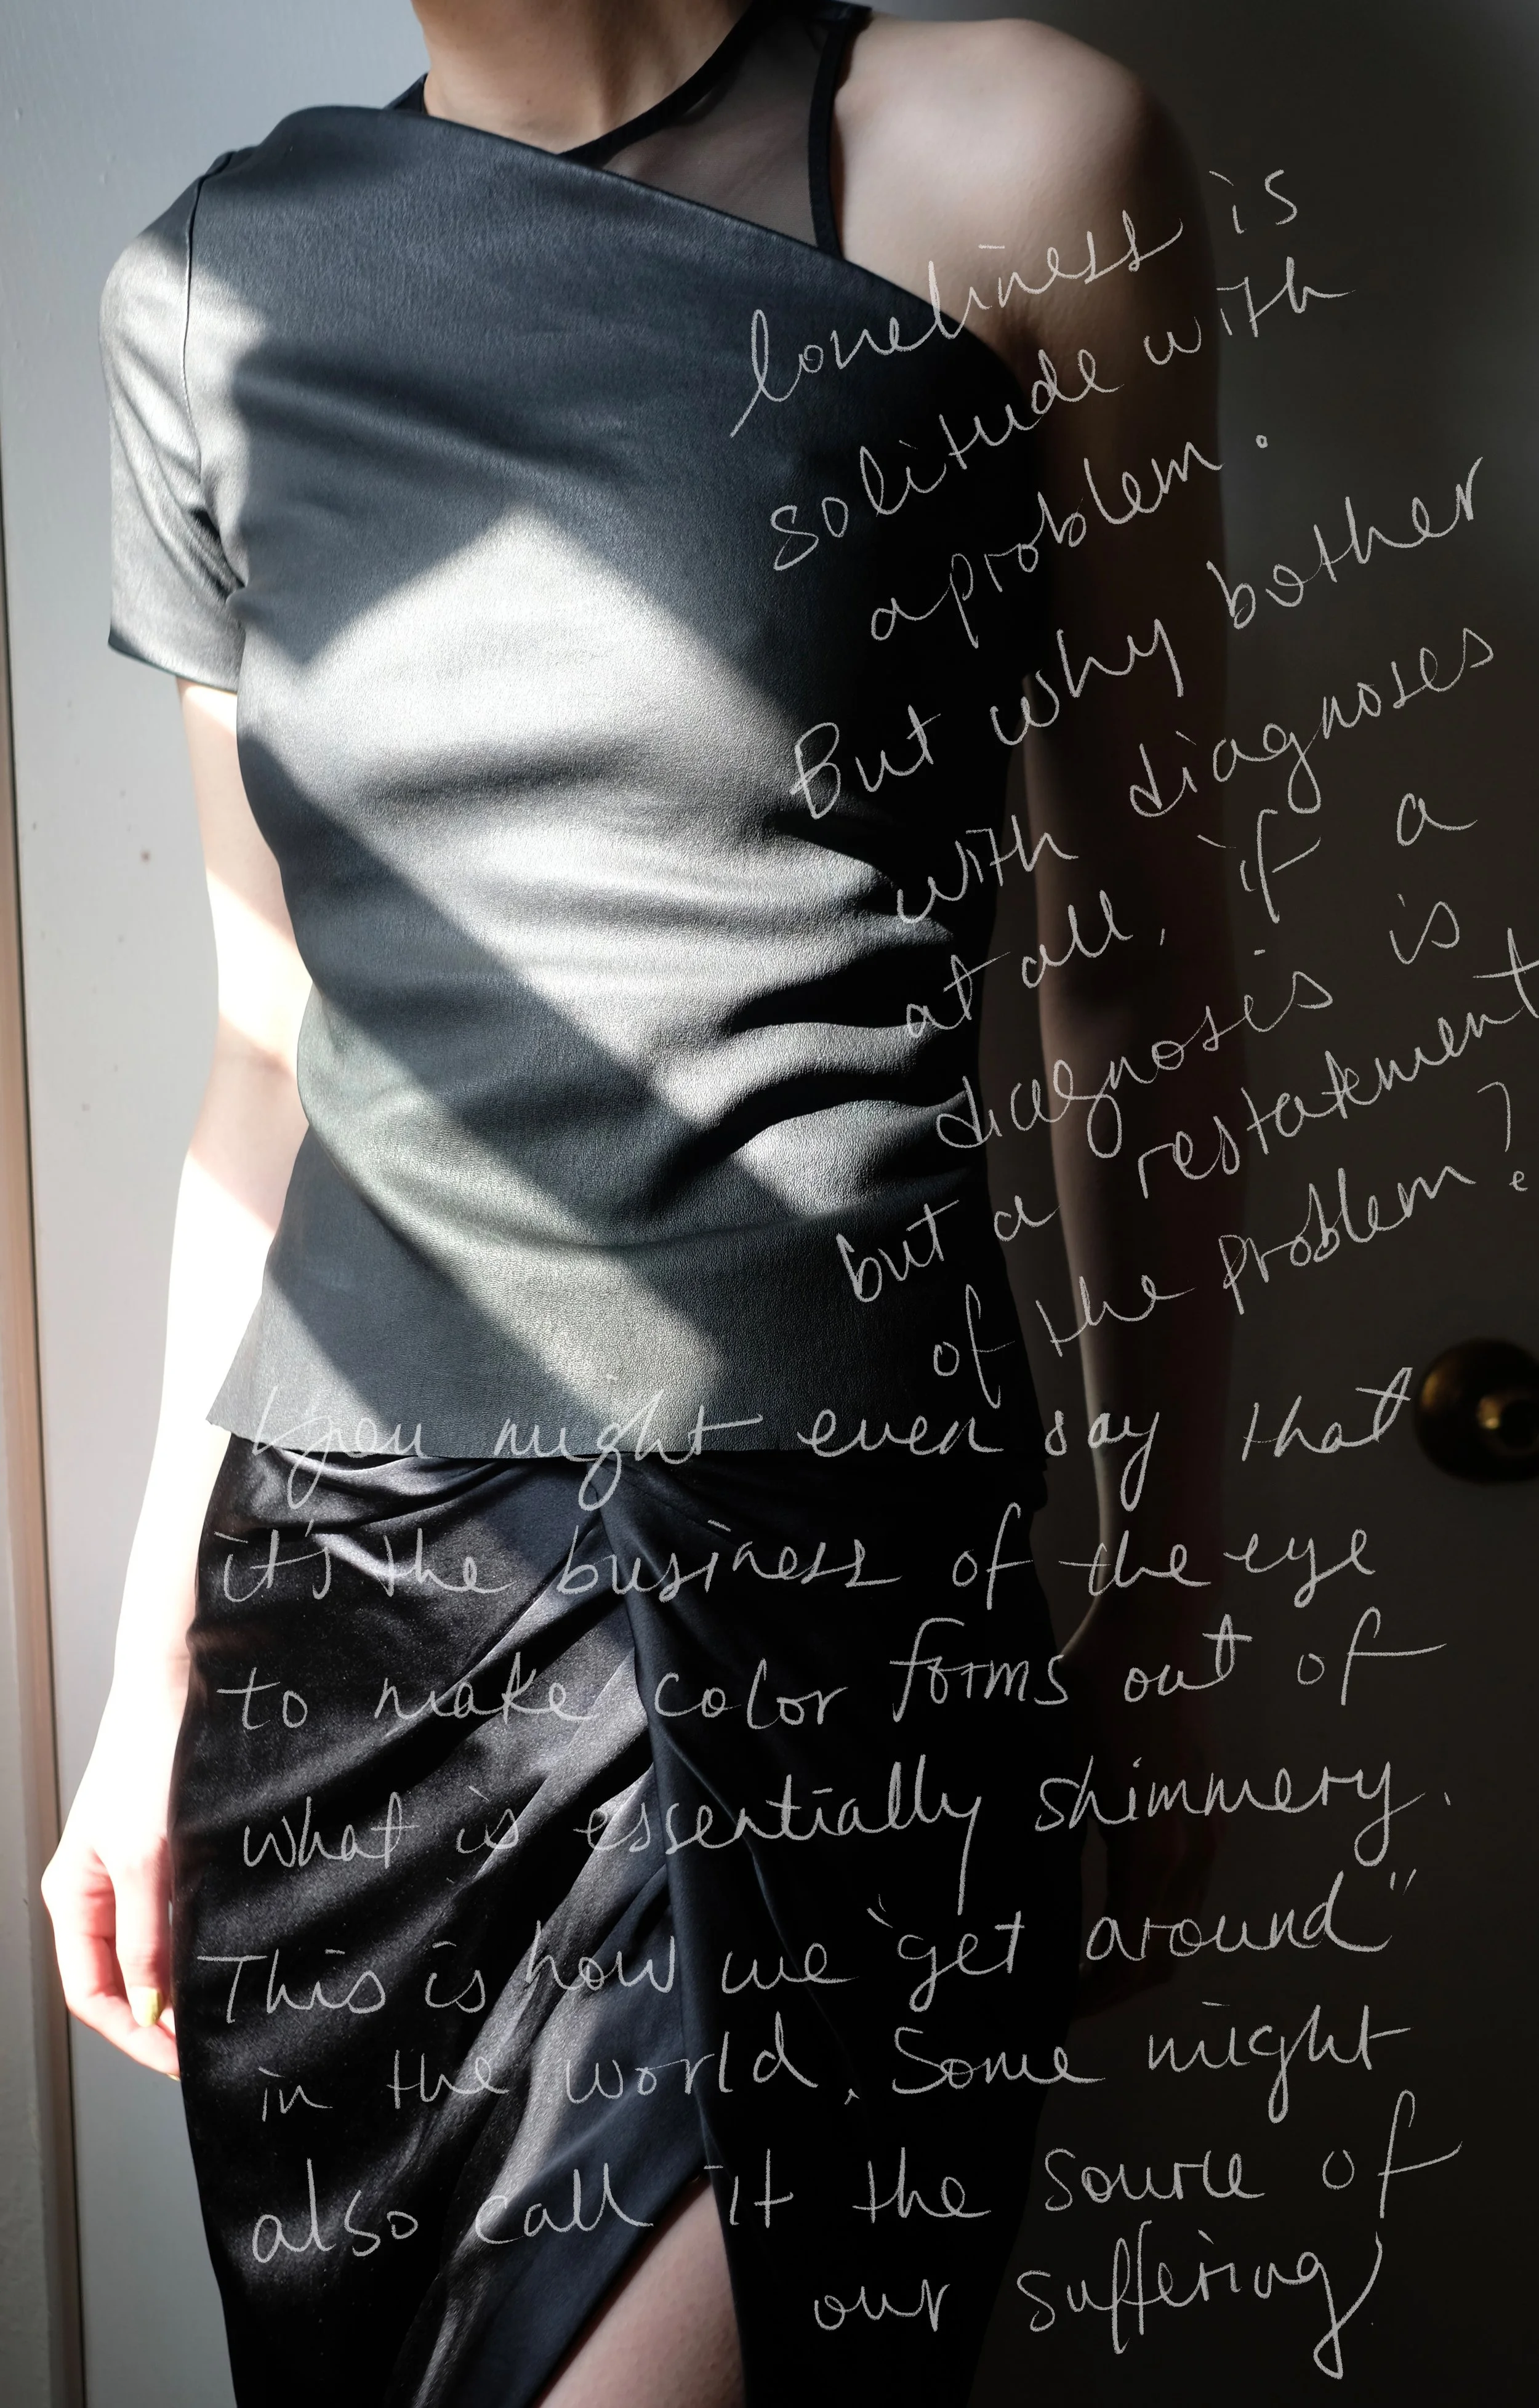 loneliness is
solitude with
a problem.
But why bother
with diagnoses
at all, if a
diagnosis is
but a restatement
of the problem?
you might even say that
it's the business of the eye
to make color forms out of
what is essentially shimmery.
This is how we "get around"
in the world. Some might
also call it the source of
our suffering